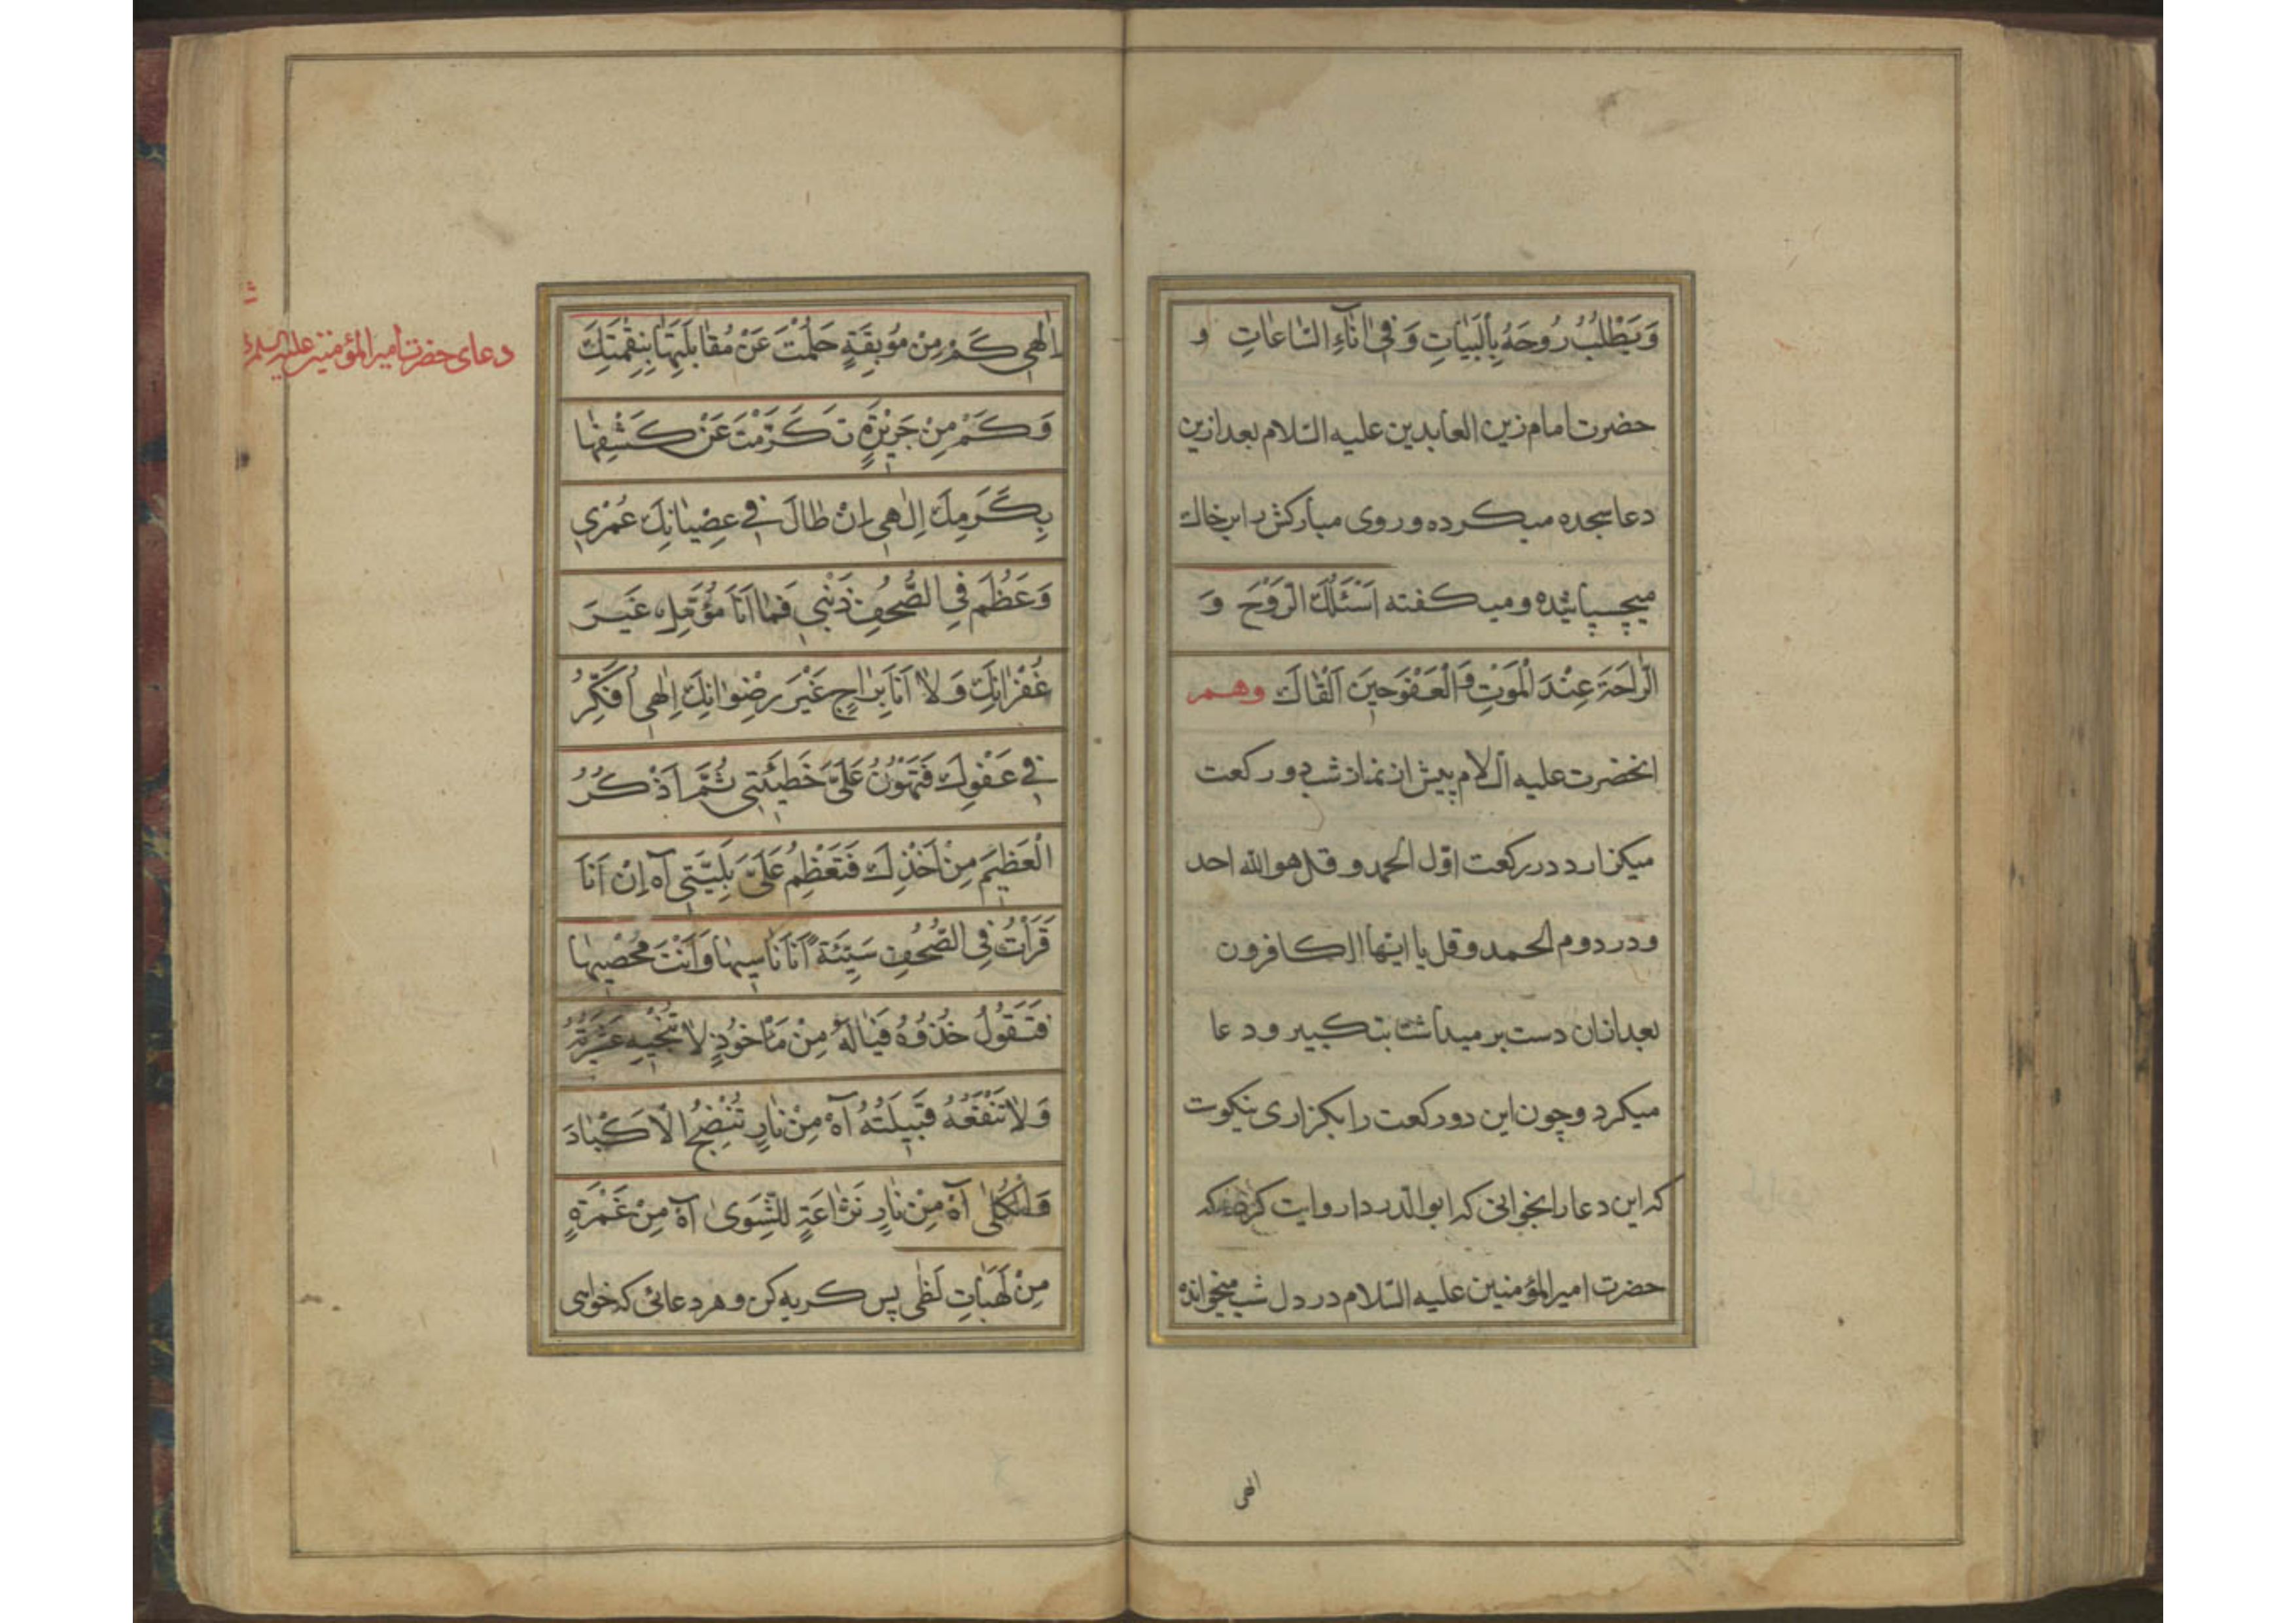 وَيَطْلُبُ رُوحَهُ بِالْبَيَاتِ وَفِي اٰنَآءِ السّٰاعٰاتِ و
حضرت امام زين العابدين عليه السّلام بعد ازين
دعا سجده ميكرده وروى مباركش بر خاك
ميچسپانيده وميكفته اَسْئَلُكَ الرَّوْحَ وَ
الرّٰاحَةَ عِنْدَ الْمَوْتِ وَالْعَفْوَ حِينَ اَلْقٰاكَ وهم
انحضرت عليه السلام پيش از نماز شب دو ركعت
ميكزارد در ركعت اوّل الحمد و قل هو الله احد
ودر دوم الحمد وقل يا ايّها الكافرون
بعد ازان دست بر ميداشت بتكبير ودعا
ميكرد وچون اين دو ركعت را بكزارى نيكوت
كه اين دعا را بخوانى كه ابو الدّردا روايت كرده كه
حضرت امير المؤمنين عليه السّلام در دل شب ميخوانده
الهى
دعاى حضرت امير المؤمنين عليه السلام
اِلٰهِي كَمْ مِنْ مُوبِقَةٍ حَلُمْتَ عَنْ مُقٰابَلَتِهٰا بِنِقْمَتِكَ
وَكَمْ مِنْ جَرِيرَةٍ تَكَرَّمْتَ عَنْ كَشْفِهٰا
بِكَرَمِكَ اِلٰهِي اِنْ طٰالَ فِي عِصْيٰانِكَ عُمْرِي
وَعَظُمَ فِي الصُّحُفِ ذَنْبِي فَمٰا اَنَا مُؤَمِّلٌ غَيْرَ
غُفْرٰانِكَ وَلاٰ اَنَا بِرٰاجٍ غَيْرَ رِضْوٰانِكَ اِلٰهِي اُفَكِّرُ
فِي عَفْوِكَ فَتَهُونُ عَلَيَّ خَطِيئَتِي ثُمَّ اَذْكُرُ
الْعَظِيمَ مِنْ اَخْذِكَ فَتَعْظُمُ عَلَيَّ بَلِيَّتِي آه اِنْ اَنَا
قَرَاْتُ فِي الصُّحُفِ سَيِّئَةً اَنَا نٰاسِيهٰا وَاَنْتَ مُحْصِيهٰا
فَتَقُولُ خُذُوهُ فَيٰالَهُ مِنْ مَاْخُوذٍ لاٰ تُنْجِيهِ عَشِيرَتُهُ
وَلاٰ تَنْفَعُهُ قَبِيلَتُهُ آهْ مِنْ نٰارٍ تُنْضِجُ الْاَكْبٰادَ
وَالْكُلىٰ آهْ مِنْ نٰارٍ نَزّٰاعَةٍ لِلشَّوىٰ آهْ مِنْ غَمْرَةٍ
مِنْ لَهَبٰاتِ لَظىٰ پس كريه كن وهر دعائى كه خواهى